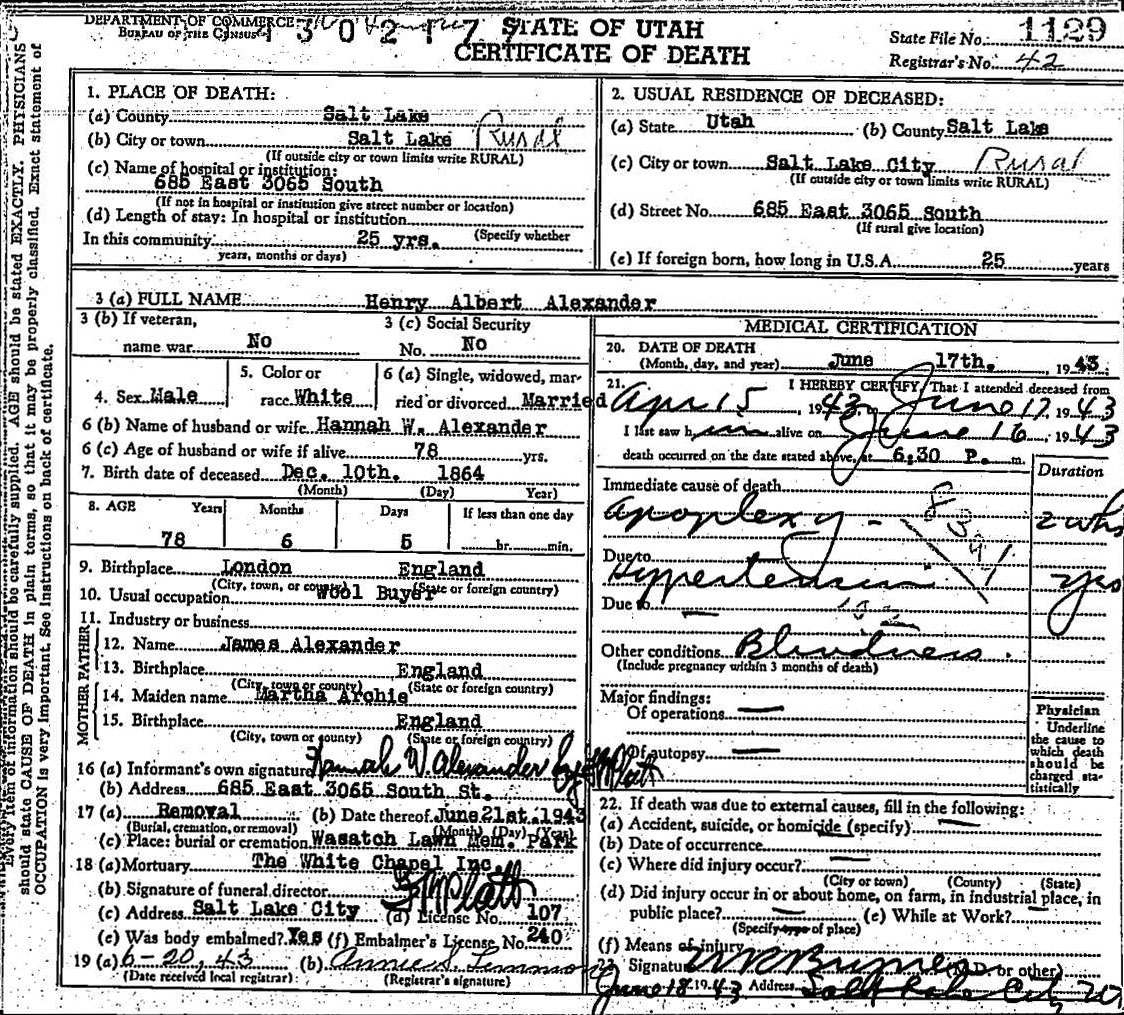 DEPARTMENT OF COMMERCE
BUREAU OF THE CENSUS
1 3 0 2 1 7 7
STATE OF UTAH
CERTIFICATE OF DEATH
State File No. 1129
Registrar's No. 42
Every item of information should be carefully supplied. AGE should be stated EXACTLY. PHYSICIANS
should state CAUSE OF DEATH in plain terms, so that it may be properly classified. Exact statement of
OCCUPATION is very important. See instructions on back of certificate.
1. PLACE OF DEATH:
(a) County Salt Lake
(b) City or town Salt Lake Rural
(If outside city or town limits write RURAL)
(c) Name of hospital or institution:
685 East 3065 South
(If not in hospital or institution give street number or location)
(d) Length of stay: In hospital or institution
(Specify whether
In this community 25 yrs.
years, months or days)
2. USUAL RESIDENCE OF DECEASED:
(a) State Utah (b) County Salt Lake
(c) City or town Salt Lake City Rural
(If outside city or town limits write RURAL)
(d) Street No. 685 East 3065 South
(If rural give location)
(e) If foreign born, how long in U.S.A. 25 years
3 (a) FULL NAME Henry Albert Alexander
3 (b) If veteran, name war No
3 (c) Social Security No. No
4. Sex Male
5. Color or race White
6 (a) Single, widowed, married or divorced Married
6 (b) Name of husband or wife Hannah W. Alexander
6 (c) Age of husband or wife if alive 78 yrs.
7. Birth date of deceased Dec. 10th. 1864
(Month) (Day) Year)
8. AGE Years Months Days If less than one day
78 6 5 hr. min.
9. Birthplace London England
(City, town, or county) (State or foreign country)
10. Usual occupation Wool Buyer
11. Industry or business
FATHER
12. Name James Alexander
13. Birthplace England
(City, town or county) (State or foreign country)
MOTHER
14. Maiden name Martha Archie
15. Birthplace England
(City, town or county) (State or foreign country)
16 (a) Informant's own signature Hannah W. Alexander by Platt
(b) Address 685 East 3065 South St.
17 (a) Removal (b) Date thereof June 21st. 1943
(Burial, cremation, or removal) (Month) (Day) (Year)
(c) Place: burial or cremation Wasatch Lawn Mem. Park
18 (a) Mortuary The White Chapel Inc.
(b) Signature of funeral director Platt
(c) Address Salt Lake City (d) License No. 107
(e) Was body embalmed? Yes (f) Embalmer's License No. 240
19 (a) 6-20, 43 (b) Annie S. Lemmon
(Date received local registrar) (Registrar's signature)
MEDICAL CERTIFICATION
20. DATE OF DEATH
(Month, day, and year) June 17th. , 1943.
21. I HEREBY CERTIFY, That I attended deceased from
Apr 15, 1943 to June 17, 1943
I last saw him alive on June 16, 1943
death occurred on the date stated above, at 6:30 P. m.
Duration
Immediate cause of death
Apoplexy - 2 wks
83
Due to
Hypertension yrs
Due to —
102
Other conditions Blindness.
(Include pregnancy within 3 months of death)
Major findings:
Of operations —
Of autopsy —
Physician
Underline
the cause to
which death
should be
charged sta-
tistically
22. If death was due to external causes, fill in the following:
(a) Accident, suicide, or homicide (specify) —
(b) Date of occurrence
(c) Where did injury occur? —
(City or town) (County) (State)
(d) Did injury occur in or about home, on farm, in industrial place, in
public place? — (e) While at Work? —
(Specify type of place)
(f) Means of injury
23. Signature (M.D. or other)
June 18, 1943 Address Salt Lake City